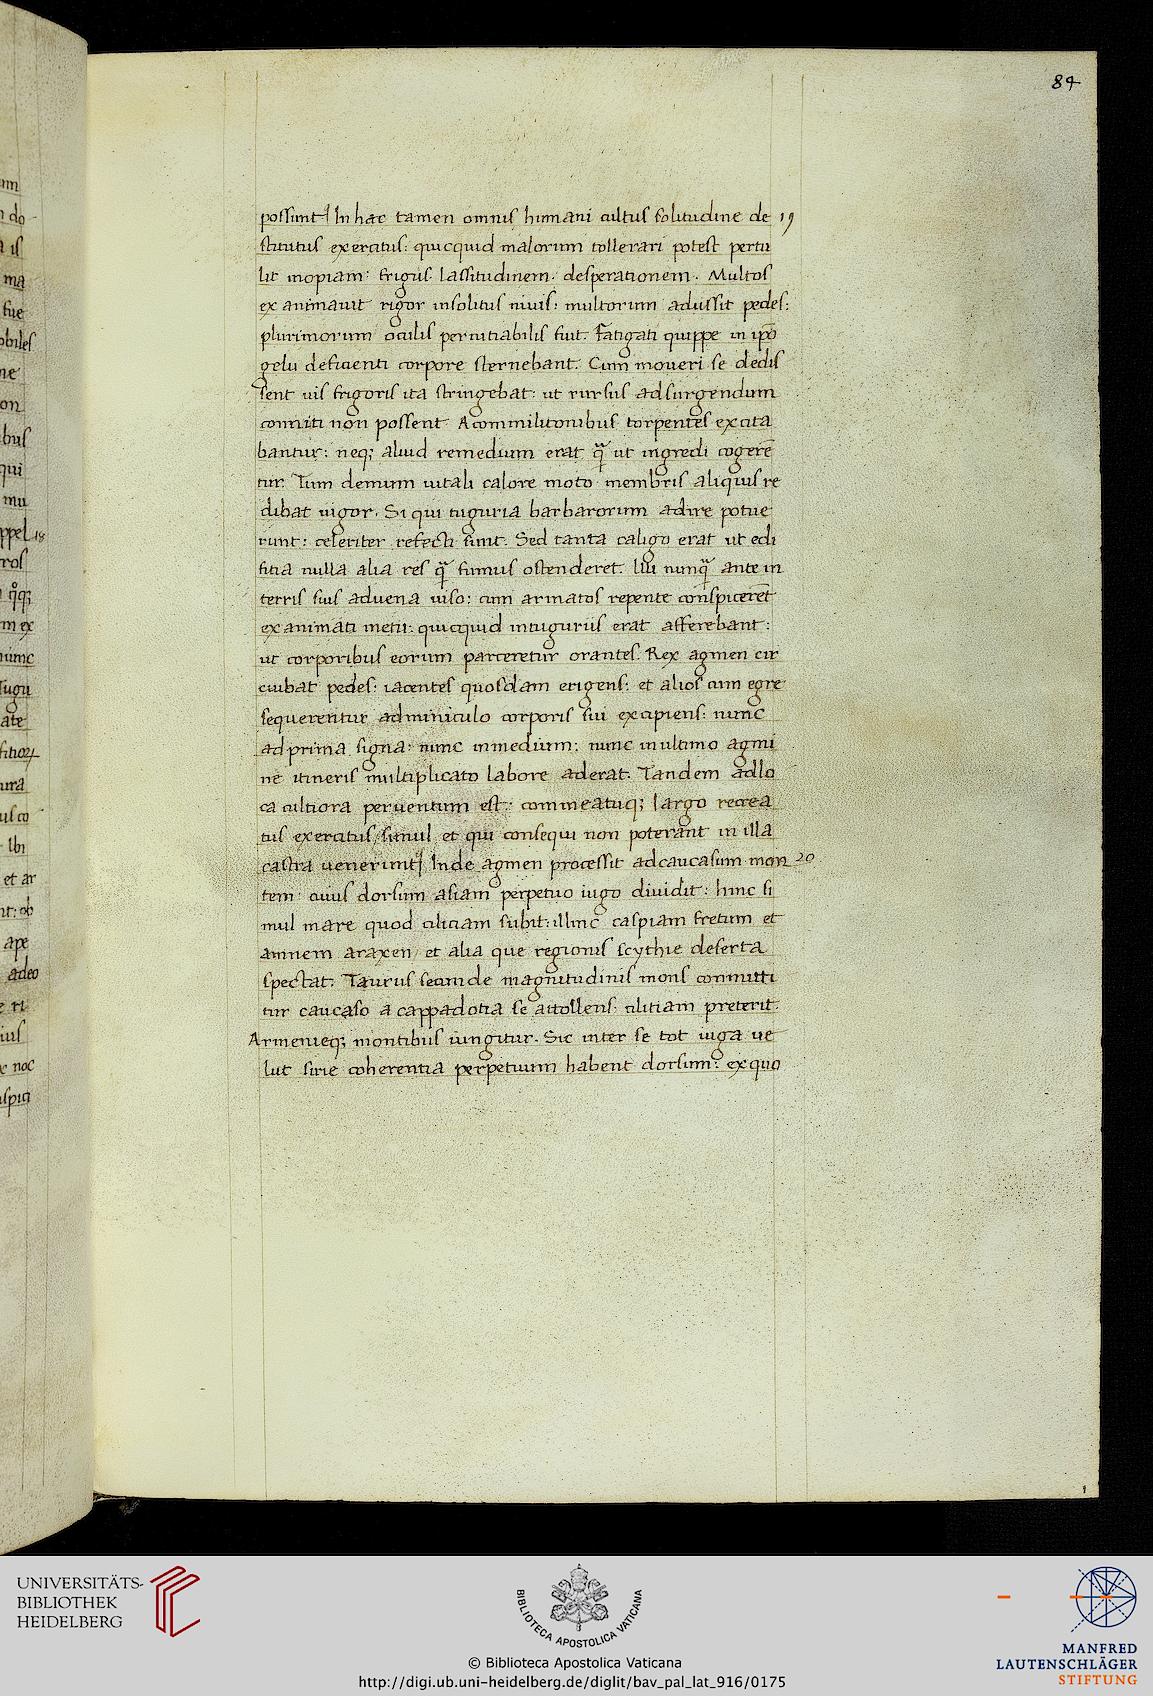 84
possunt In hac tamen omnis humani cultus solitudine de 19
stitutus exercitus: quicquid malorum tollerari potest pertu
lit inopiam: frigus. lassitudinem. desperationem. Multos
exanimauit rigor insolitus niuis: multorum adussit pedes:
plurimorum oculis percutiabilis fuit. Fatigati quippe in ipo
gelu deficienti corpore sternebant. Cum moueri se dedis
sent uis frigoris ita stringebat: ut rursus adsurgendum
conniti non possent. Acommilitonibus torpentes excita
bantur: neq; aliud remedium erat quā ut ingredi cogerē
tur. Tum demum uitali calore moto membris aliquis re
dibat uigor. Si qui tuguria barbarorum adire potue
runt: celeriter refecti sunt. Sed tanta caligo erat ut edi
fitia nulla alia res quā fumus ostenderet. Illi nunquā ante in
terris suis aduena uiso: cum armatos repente conspicerēt
exanimati metu: quicquid intuguriis erat afferebant:
ut corporibus eorum parceretur orantes. Rex agmen cir
cuibat pedes: iacentes quosdam erigens: et alios cum egre
sequerentur adminiculo corporis sui excipiens: nunc
adprima signa: nunc inmedium: nunc inultimo agmi
ne itineris multiplicato labore aderat. Tandem adlo
ca cultiora peruentum est: commeatuq; largo recrea
tus exercitus simul et qui consequi non poterant in illa
castra uenerunt Inde agmen processit adcaucasum mon 20
tem: cuius dorsum asiam perpetuo iugo diuidit: hinc si
mul mare quod ciliciam subit: illinc caspiam fretum et
amnem araxen et alia que regionis scythie deserta
spectat. Taurus secunde magnitudinis mons committi
tur caucaso a cappadotia se attollens: cilitiam preterit.
Armenieq; montibus iungitur. Sic inter se tot iuga ue
lut sirie coherentia perpetuum habent dorsum: exquo
UNIVERSITÄTS-
BIBLIOTHEK
HEIDELBERG
BIBLIOTECA APOSTOLICA VATICANA
MANFRED
LAUTENSCHLÄGER
STIFTUNG
© Biblioteca Apostolica Vaticana
http://digi.ub.uni-heidelberg.de/diglit/bav_pal_lat_916/0175